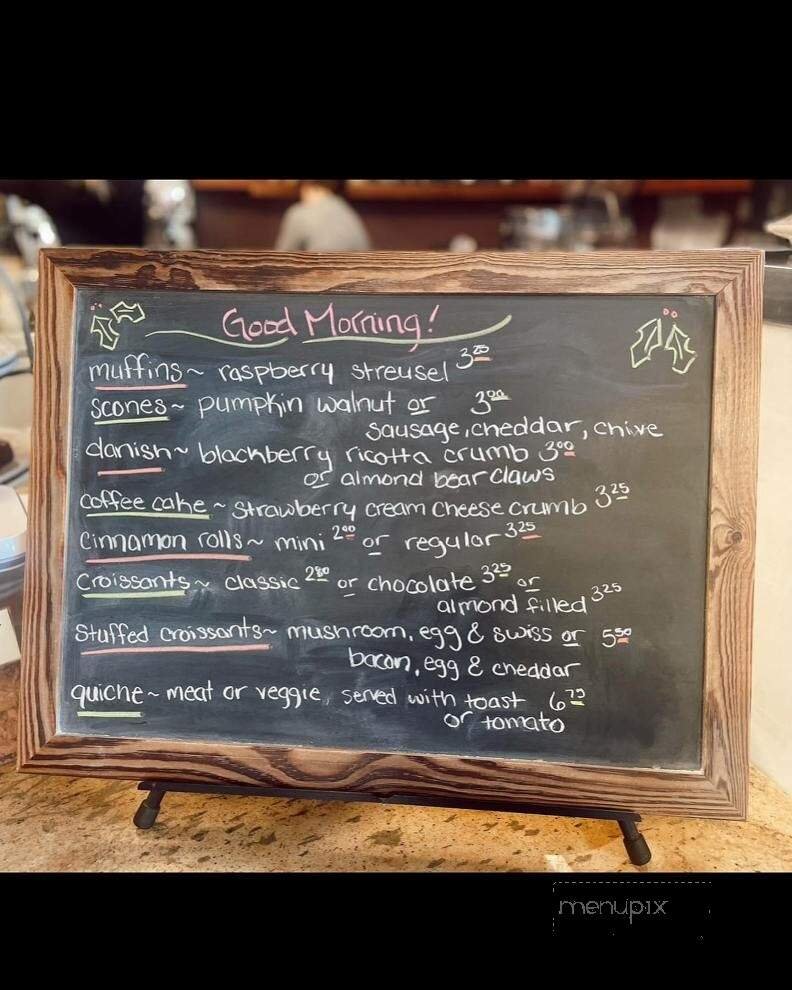 Good Morning!
muffins ~ raspberry streusel 3.25
scones ~ pumpkin walnut or 3.00
sausage, cheddar, chive
danish ~ blackberry ricotta crumb 3.00
or almond bear claws
coffee cake ~ strawberry cream cheese crumb 3.25
cinnamon rolls ~ mini 2.00 or regular 3.25
croissants ~ classic 2.80 or chocolate 3.25 or
almond filled 3.25
Stuffed croissants ~ mushroom, egg & swiss or 5.50
bacon, egg & cheddar
quiche ~ meat or veggie, served with toast 6.75
or tomato
menupix